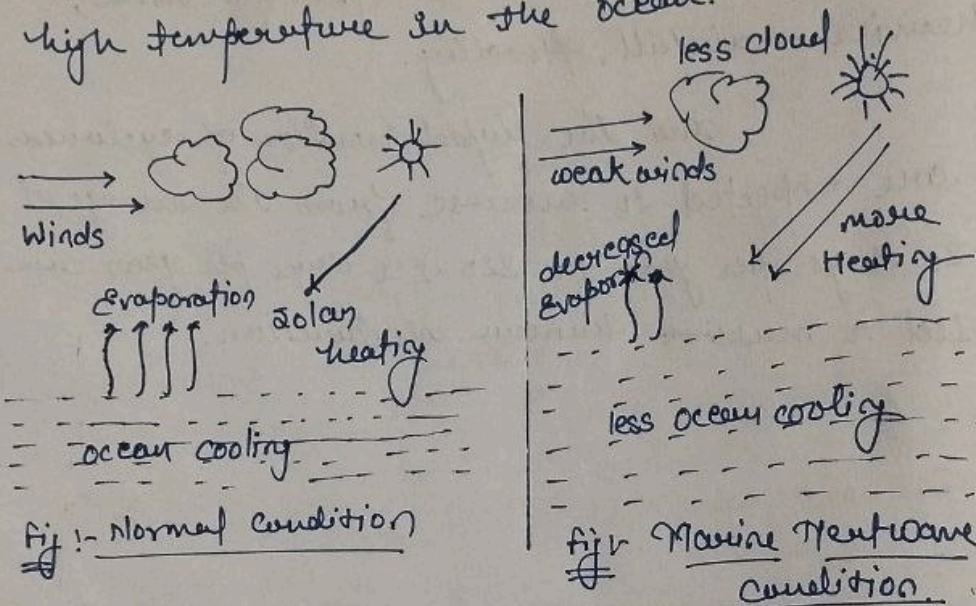 high temperature in the ocean.
Winds
Evaporation
solar
heating
ocean cooling
fig :- Normal condition
less cloud
weak winds
decreased
Evaporn
more
Heating
less ocean cooling
fig :- Marine Heatwave
condition.